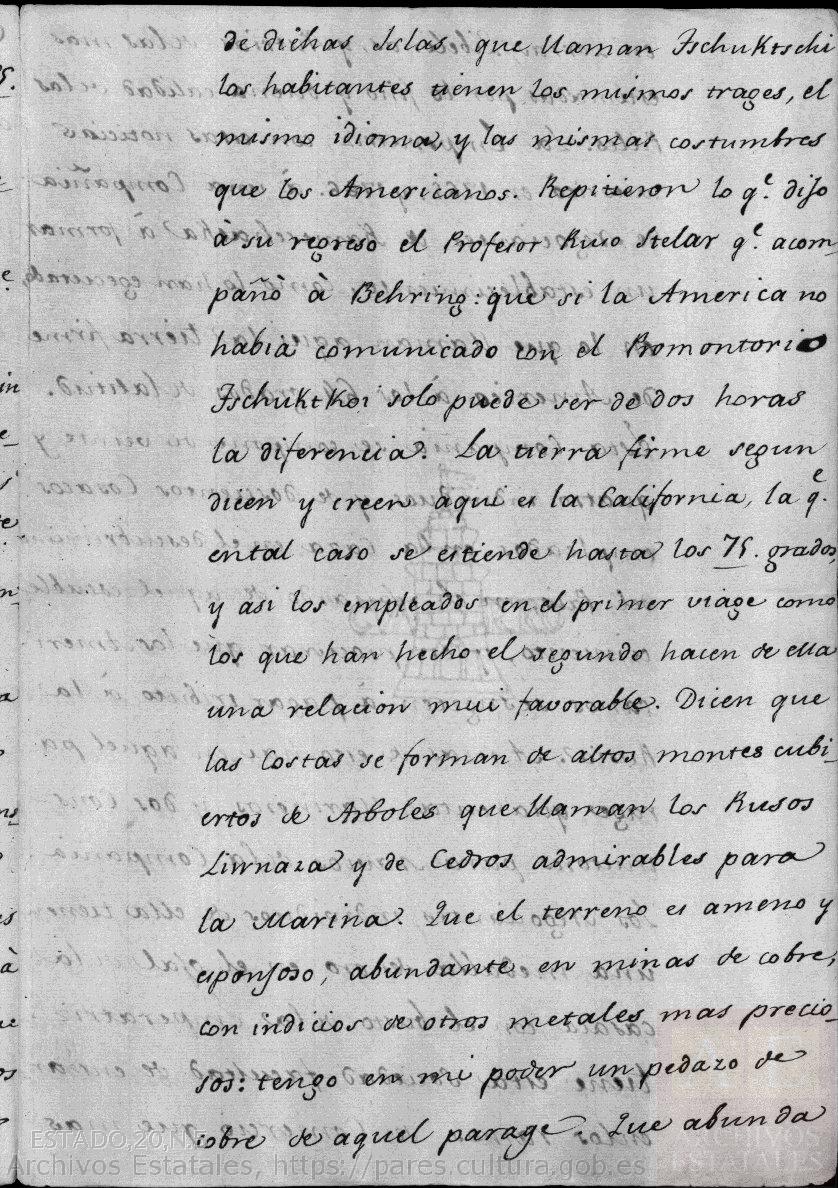 de dichas Islas que llaman Ischuktschi
los habitantes tienen los mismos trages, el
mismo idioma, y las mismas costumbres
que los Americanos. Repitieron lo q.e dijo
à su regreso el Profesor Ruso Stelar q.e acom-
pañò à Behring: que si la America no
habia comunicado con el Promontorio
Ischuktkoi solo puede ser de dos horas
la diferencia. La tierra firme segun
dicen y creen aqui es la California, la q.e
en tal caso se estiende hasta los 75. grados,
y asi los empleados en el primer viage como
los que han hecho el segundo hacen de ella
una relacion mui favorable. Dicen que
las Costas se forman de altos montes cubi-
ertos de Arboles que llaman los Rusos
Livnaza y de Cedros admirables para
la Marina. Que el terreno es ameno y
esponjoso, abundante en minas de cobre,
con indicios de otros metales mas precio-
sos: tengo en mi poder un pedazo de
cobre de aquel parage. Que abunda
ESTADO,20,N.
Archivos Estatales, https://pares.cultura.gob.es